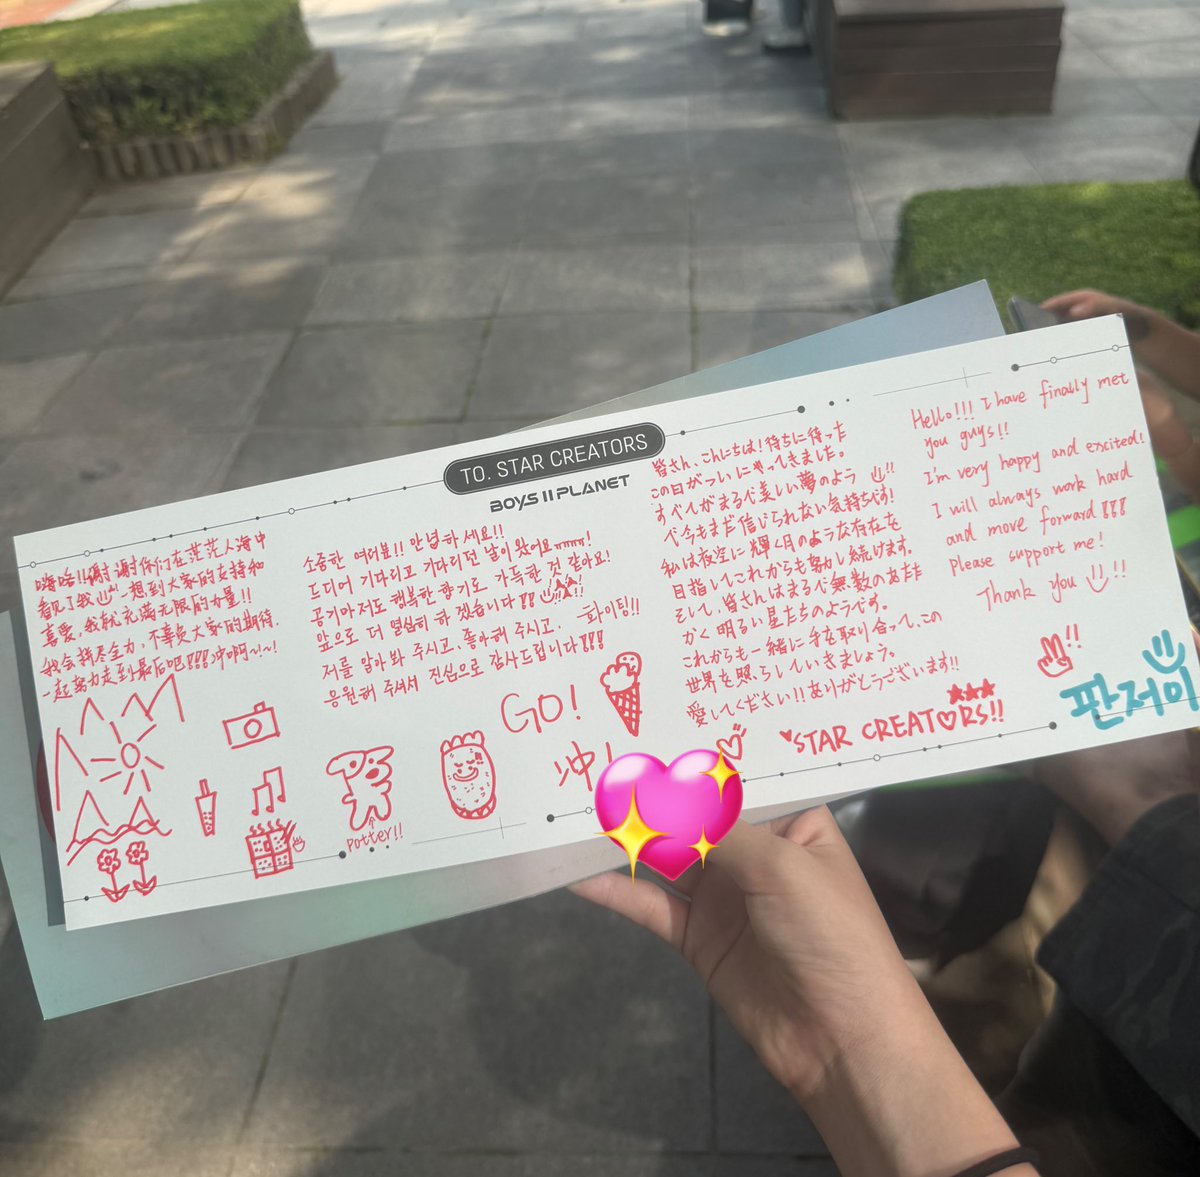 TO. STAR CREATORS
BOYS II PLANET
嗨嗨!!谢谢你们在茫茫人海中
看见了我 想到大家的支持和
喜爱,我就充满无限的力量!!
我会拼尽全力,不辜负大家的期待.
一起努力走到最后吧!!!冲啊~!~!
소중한 여러분!! 안녕하세요!!
드디어 기다리고 기다리던 날이 왔어요
공기마저도 행복한 향기로 가득한 것 같아요!
앞으로 더 열심히 하겠습니다!!
저를 알아봐 주시고, 좋아해 주시고, 화이팅!!
응원해 주셔서 진심으로 감사드립니다!!!
GO!
冲!
potter!!
皆さん、こんにちは!待ちに待った
この日がついにやってきました。
すべてがまるで美しい夢のよう
で今もまだ信じられない気持ちです!
私は夜空に輝く月のような存在を
目指してこれからも努力し続けます。
そして、皆さんはまるで無数のあたた
かく明るい星たちのようです。
これからも一緒に手を取り合って、この
世界を照らしていきましょう。
愛してください!!ありがとうございます!!
STAR CREAT♡RS!!
Hello!!! I have finally met
you guys!!
I'm very happy and excited!
I will always work hard
and move forward!!!
please support me!
Thank you !!
판저이